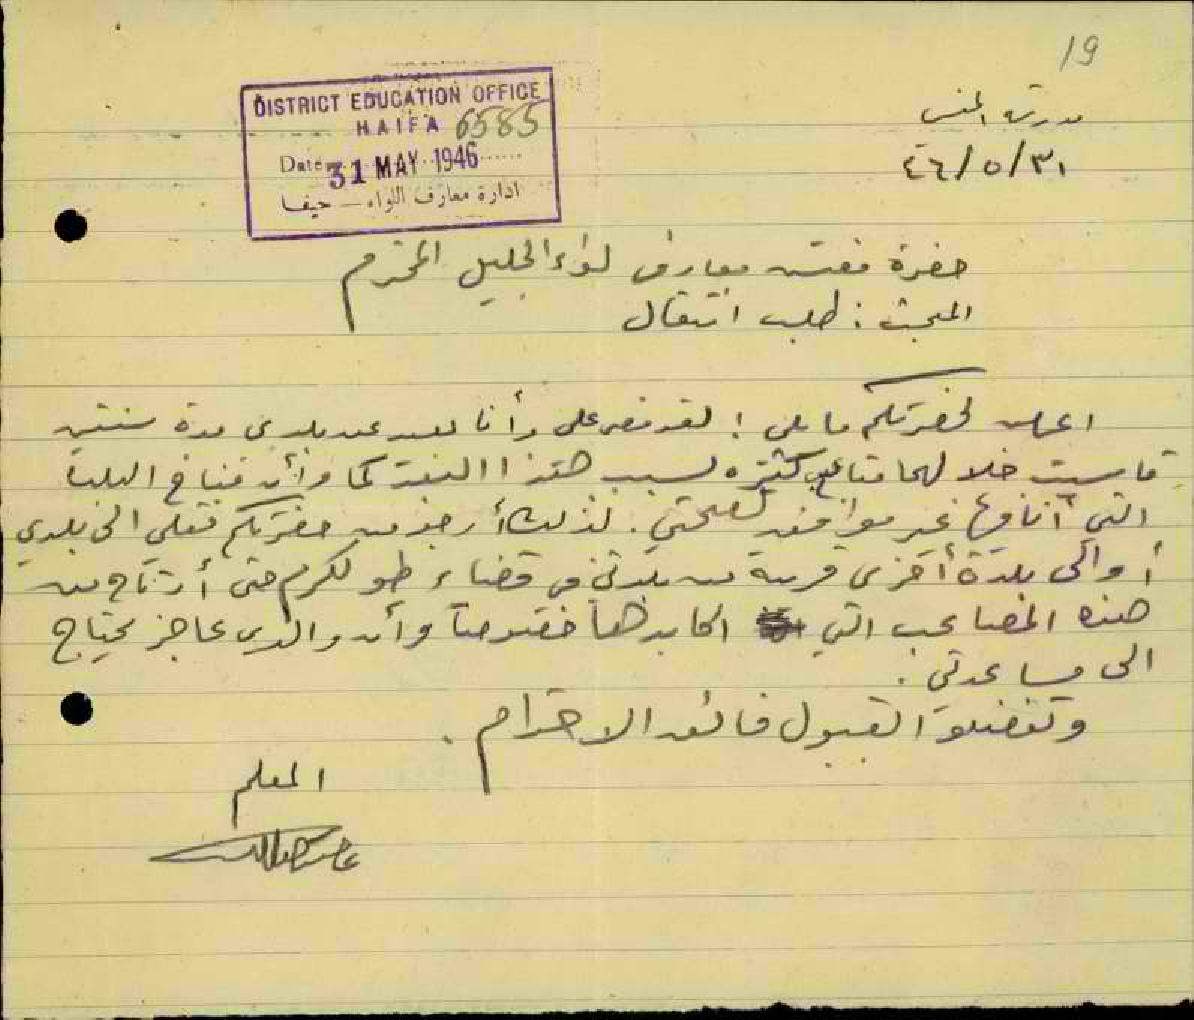 19
DISTRICT EDUCATION OFFICE
HAIFA 6585
Date 31 MAY 1946
ادارة معارف اللواء — حيفا
مدرسة
٣١/٥/٤٦
حضرة مفتش معارف لواء الجليل المحترم
المبحث : طلب انتقال
اعرض لحضرتكم ما يلي : لقد مضى علي وأنا بعيد عن بلدي مدة سنتين
قاسيت خلالهما متاعب كثيرة بسبب هذا البعد كما وأن مناخ البلد
التي أنا فيها غير موافق لصحتي . لذلك أرجو من حضرتكم نقلي الى بلدي
أو الى بلدة أخرى قريبة من بلدتي في قضاء طولكرم حتى أرتاح من
هذه المصاعب التي اكابدها خصوصا وأن والدي عاجز يحتاج
الى مساعدتي .
وتفضلوا بقبول فائق الاحترام .
المعلم